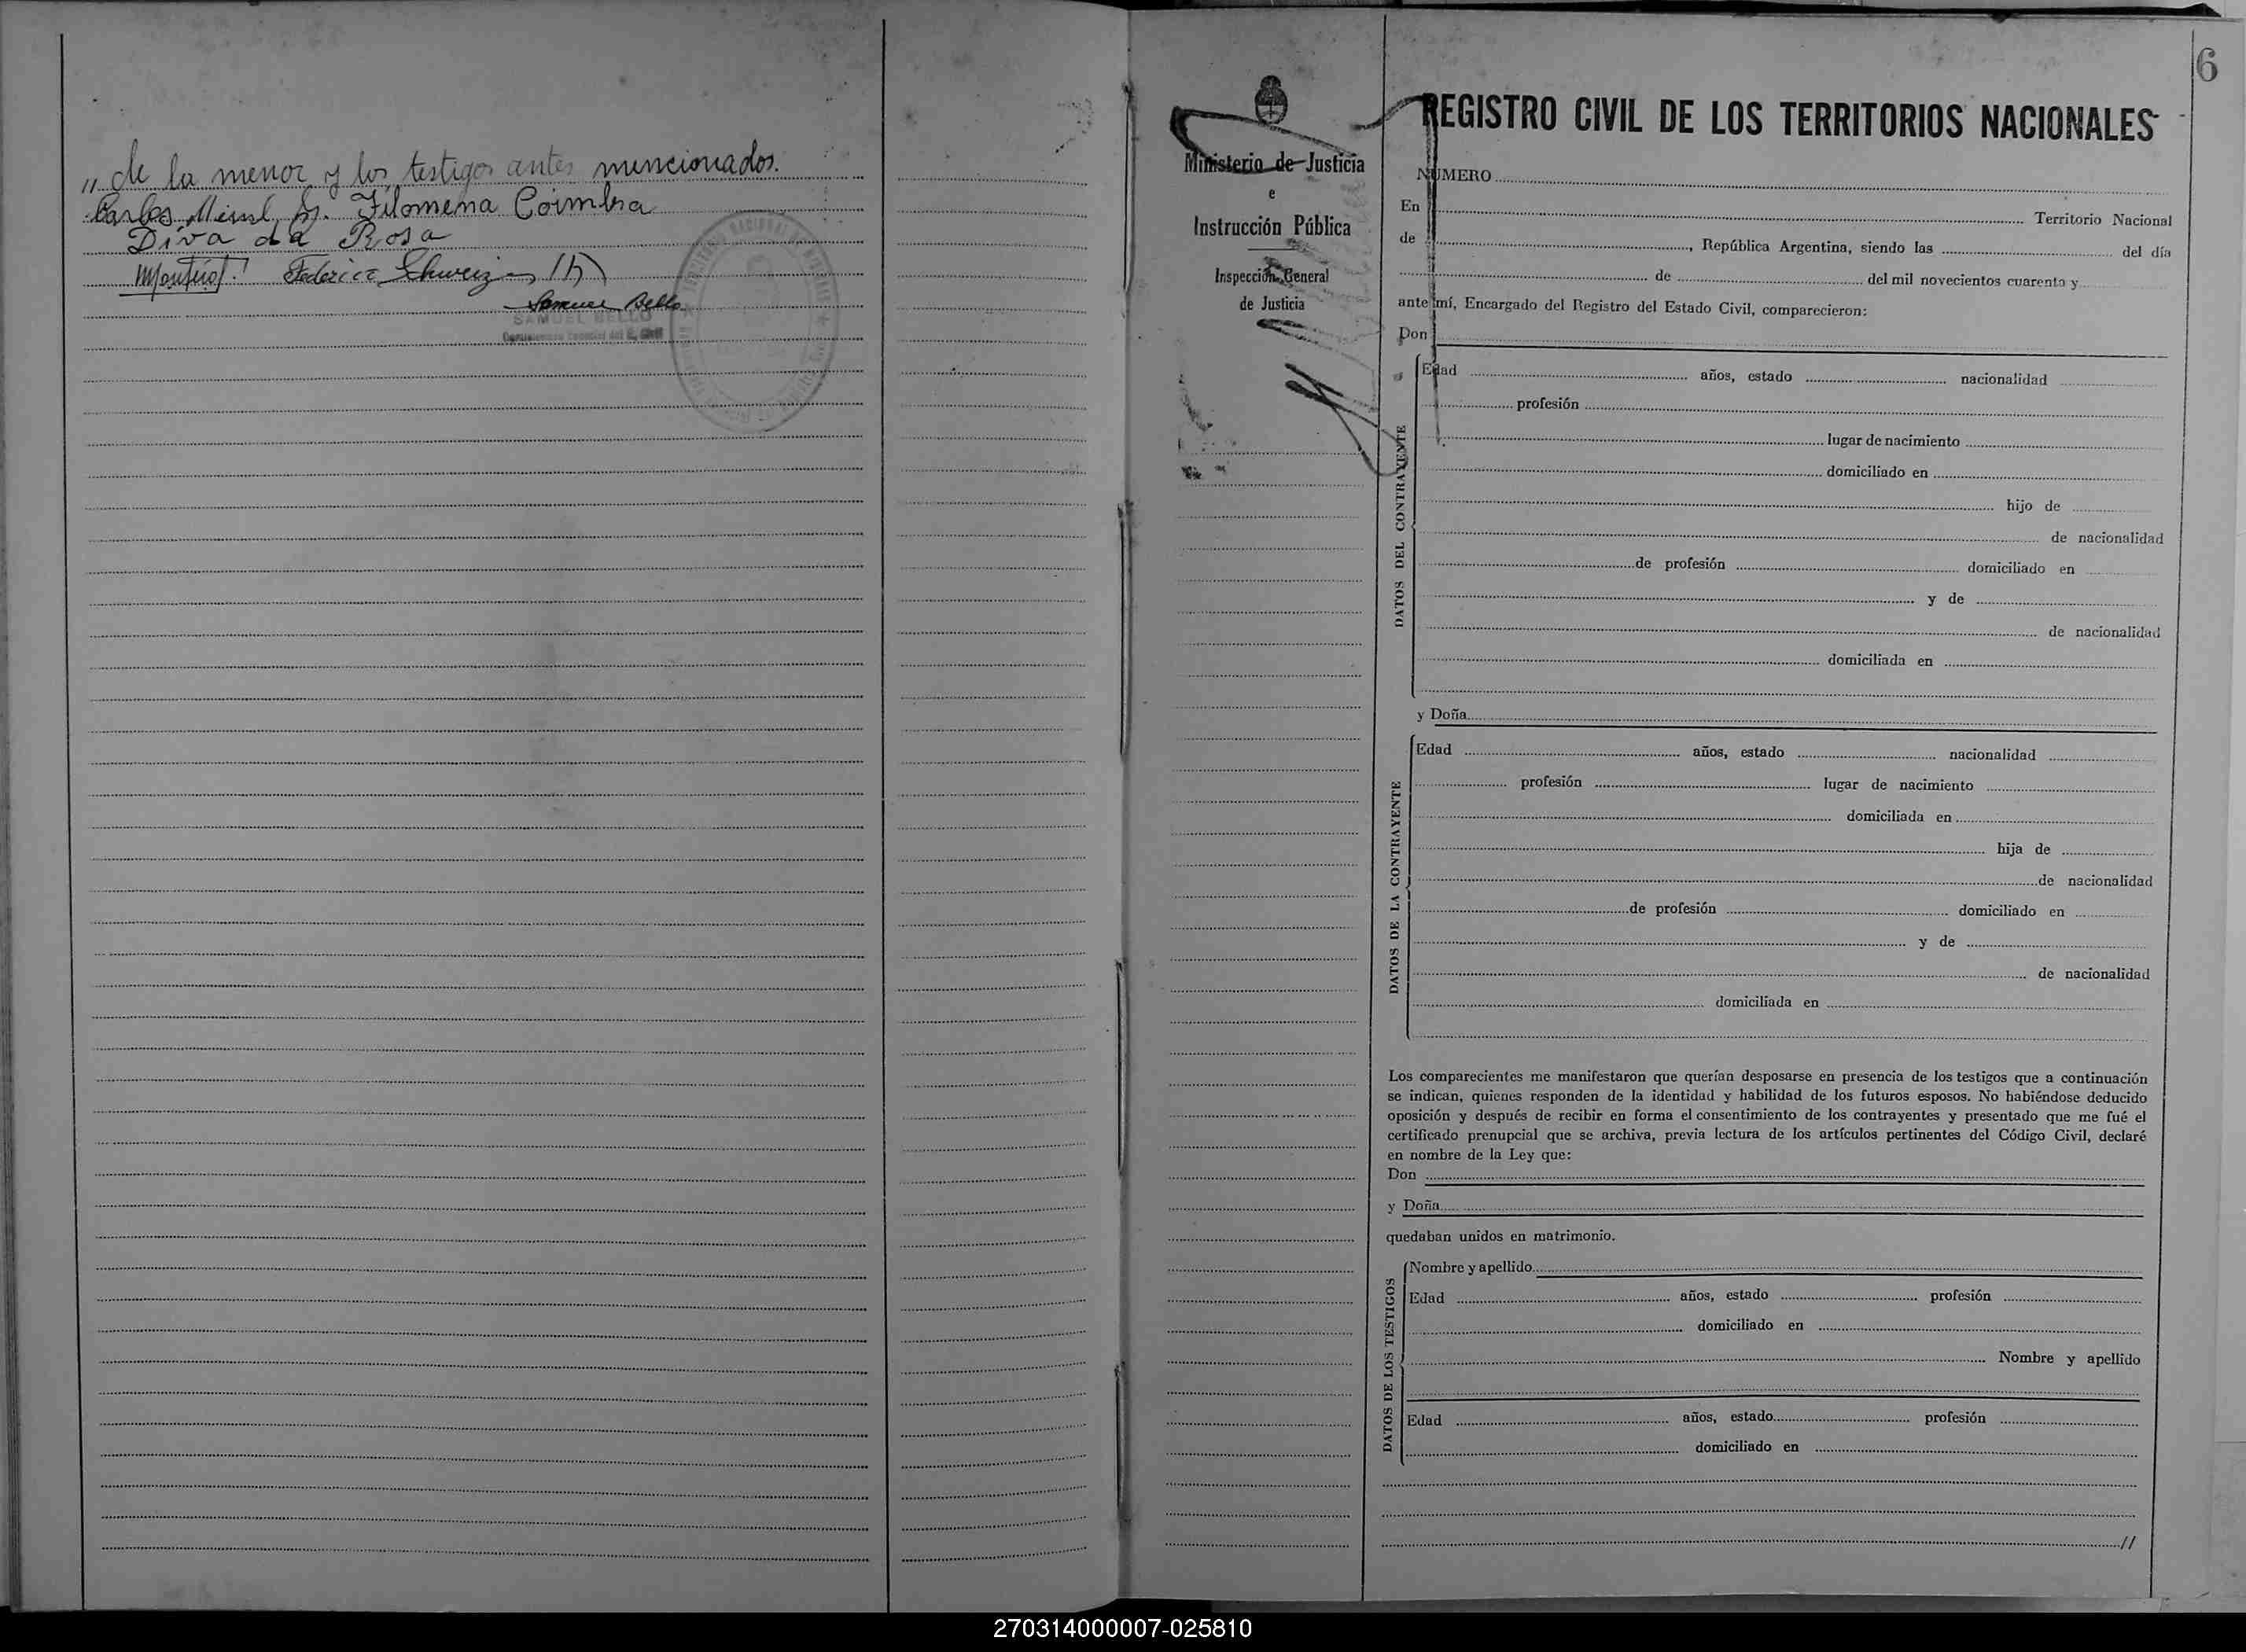 „ de la menor y los testigos antes mencionados.
Carlos M. Filomena Coimbra
Diva da Rosa
Federico
Samuel Bello
SAMUEL BELLO
Ministerio de Justicia
e
Instrucción Pública
Inspección General
de Justicia
6
REGISTRO CIVIL DE LOS TERRITORIOS NACIONALES
NÚMERO
En Territorio Nacional
de , República Argentina, siendo las del día
de del mil novecientos cuarenta y
ante mí, Encargado del Registro del Estado Civil, comparecieron:
Don
DATOS DEL CONTRAYENTE
Edad años, estado nacionalidad
profesión
lugar de nacimiento
domiciliado en
hijo de
de nacionalidad
de profesión domiciliado en
y de
de nacionalidad
domiciliada en
y Doña
DATOS DE LA CONTRAYENTE
Edad años, estado nacionalidad
profesión lugar de nacimiento
domiciliada en
hija de
de nacionalidad
de profesión domiciliado en
y de
de nacionalidad
domiciliada en
Los comparecientes me manifestaron que querían desposarse en presencia de los testigos que a continuación
se indican, quienes responden de la identidad y habilidad de los futuros esposos. No habiéndose deducido
oposición y después de recibir en forma el consentimiento de los contrayentes y presentado que me fué el
certificado prenupcial que se archiva, previa lectura de los artículos pertinentes del Código Civil, declaré
en nombre de la Ley que:
Don
y Doña
quedaban unidos en matrimonio.
DATOS DE LOS TESTIGOS
Nombre y apellido
Edad años, estado profesión
domiciliado en
Nombre y apellido
Edad años, estado profesión
domiciliado en
//
270314000007-025810